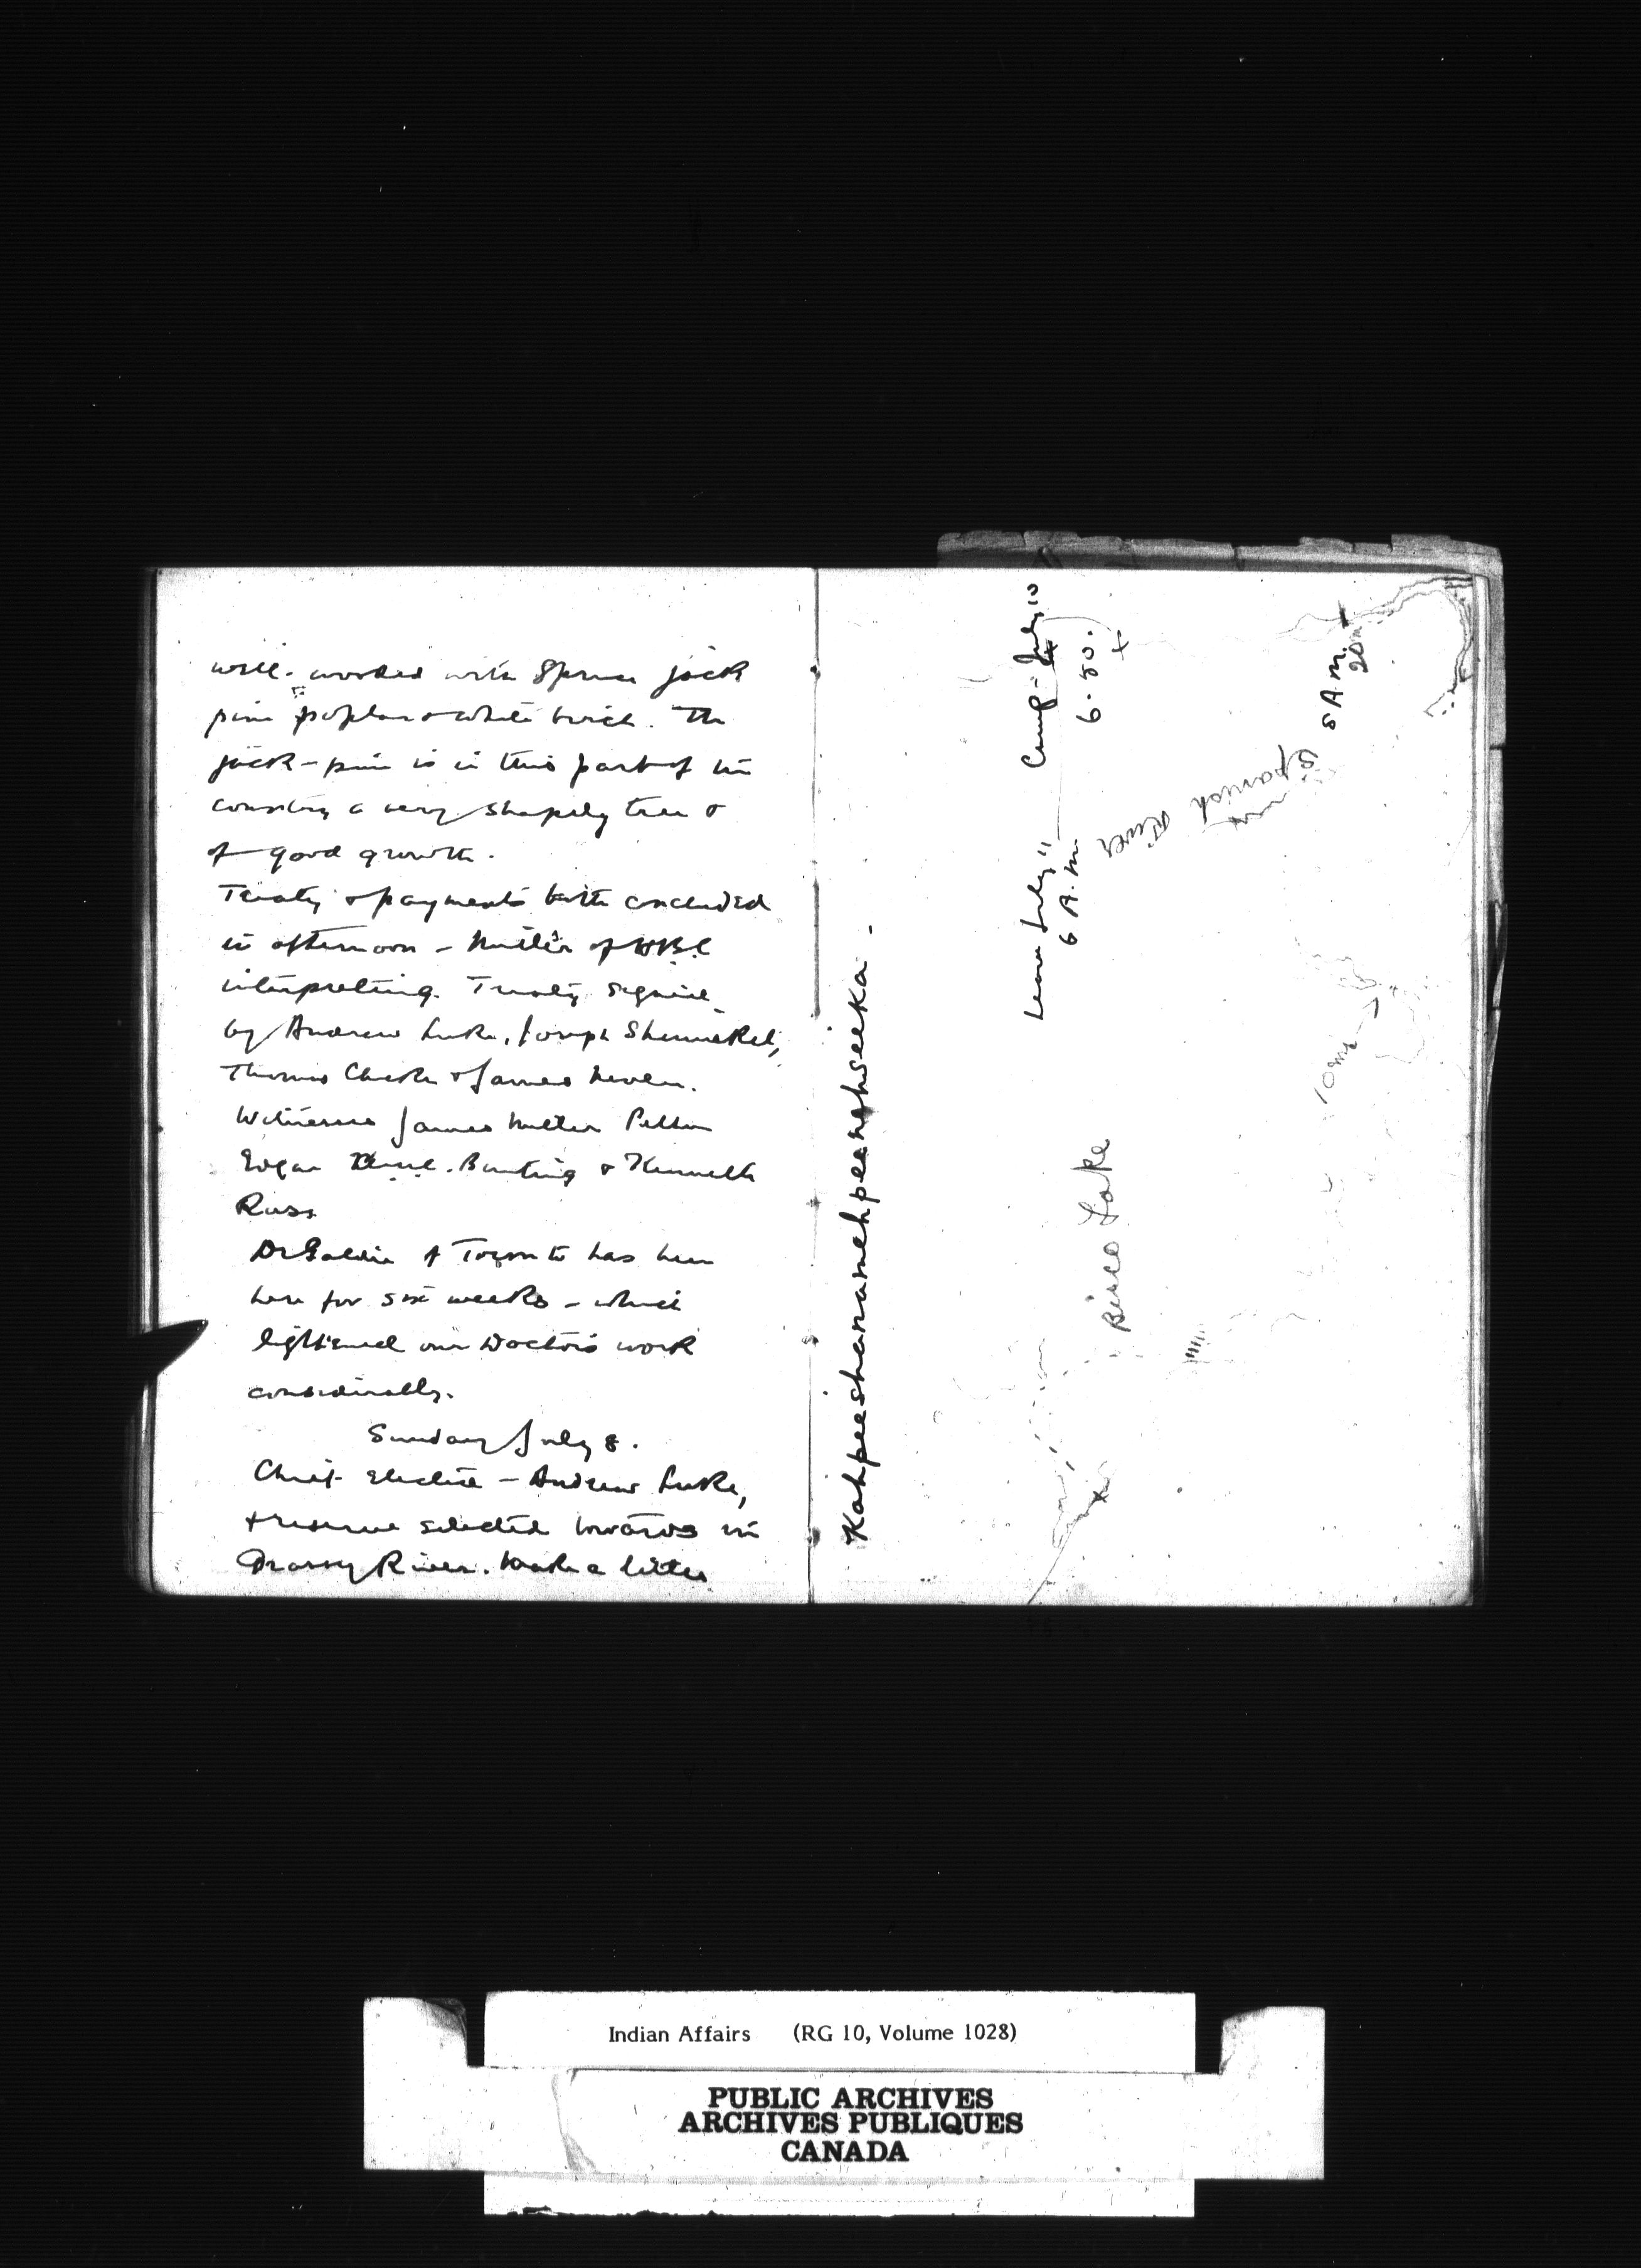 well-wooded with Spruce jack
pine poplar & white birch. The
jack-pine is in this part of the
country a very shapely tree &
of good growth.
Treaty & payments both concluded
in afternoon - Miller of HBC
interpreting. Treaty signed
by Andrew Luke, Joseph Shemeket,
Thomas Cheeke & James Neven.
Witnesses James Miller Pelham
Edgar Bunting & Kenneth
Ross
Dr Goldie of Toronto has been
here for six weeks - which
lightened our Doctors work
considerably.
Sunday July 8.
Chief elected - Andrew Luke,
& reserve selected towards the
Grassy River. Make a letter
Kahpeeshanamehpeenahseeka -
Leave July 11
6 A.m
Camp - July 10
6.50.
Bisco Lake
Spanish River
8 A.m.
20m
10 mls
Indian Affairs (RG 10, Volume 1028)
PUBLIC ARCHIVES
ARCHIVES PUBLIQUES
CANADA